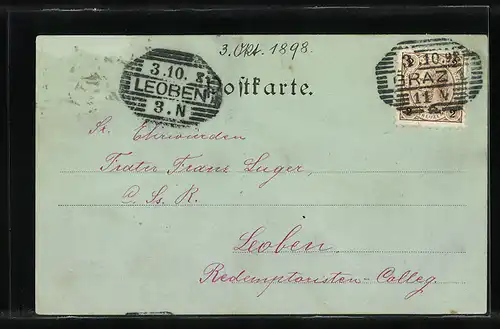 3. Okt. 1898.
3.10.98
LEOBEN
3.N
Postkarte.
3.10.98
GRAZ
11 V
2
Sr. Ehrwürden
Frater Franz Luger,
C. Ss. R.
Leoben
Redemptoristen-Colleg.